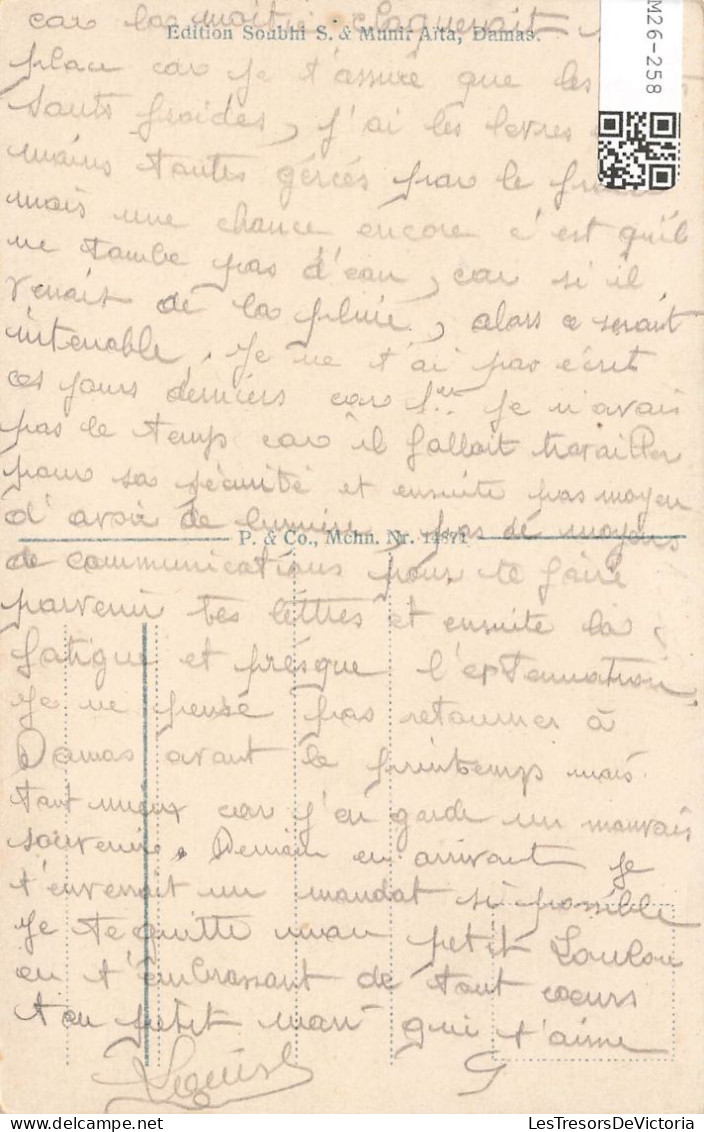 car la moitié claquerait
Edition Soubhi S. & Munir Aïta, Damas.
M26-258
place car je t'assure que les
sants froides, j'ai les levres
mains toutes gércés par le froid
mais une chance encore c'est qu'il
ne tombe pas d'eau, car si il
venait de la pluie, alors ce serait
intenable. Je ne t'ai pas écrit
ces jours derniers car 1er je n'avais
pas le temps car il fallait travailler
pour sa sécurité et ensuite pas moyen
d'avoir de lumière, pas de moyens
P. & Co., Mchn. Nr. 14871
de communications pour te faire
parvenir tes lettres et ensuite la
fatigue et présque l'extenuation,
Je ne pense pas retourner à
Damas avant le printemps mais
tant mieux car j'en garde un mauvais
souvenir. Demain en arrivant je
t'enverrait un mandat si possible
Je te quitte mon petit Loulou
en t'embrassant de tout coeurs
ton petit man qui t'aime
LesTresorsDeVictoria.com